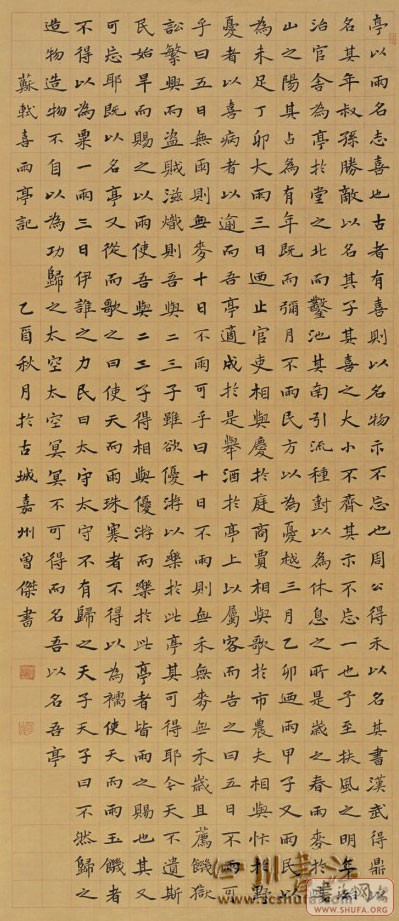 亭以雨名志喜也古者有喜則以名物示不忘也周公得禾以名其書漢武得鼎
名其年叔孫勝敵以名其子其喜之大小不齊其示不忘一也予至扶風之明年
治官舍為亭於堂之北而鑿池其南引流種對以為休息之所是歲之春雨麥於
山之陽其占為有年既而彌月不雨民方以為憂越三月乙卯迺雨甲子又雨民以
為未足丁卯大雨三日迺止官吏相與慶於庭商賈相與歌於市農夫相與忭於野
憂者以喜病者以逾而吾亭適成於是舉酒於亭上以屬客而告之曰五日不雨可
乎曰五日無雨則無麥十日不雨可乎曰十日不雨則無禾無麥無禾歲且薦饑獄
訟繁興而盜賊滋熾則吾與二三子雖欲優游以樂於此亭其可得耶今天不遺斯
民始旱而賜之以雨使吾與二三子得相與優游而樂於此亭者皆雨之賜也其又
可忘耶既以名亭又從而歌之曰使天而雨珠寒者不得以為襦使天而雨玉饑者
不得以為粟一雨三日伊誰之力民曰太守太守不有歸之天子天子曰不然歸之
造物造物不自以為功歸之太空太空冥冥不可得而名吾以名吾亭
蘇軾喜雨亭記 乙酉秋月於古城嘉州曾傑書
四川書法
www.scshufa.com
WWW.SHUFA.ORG